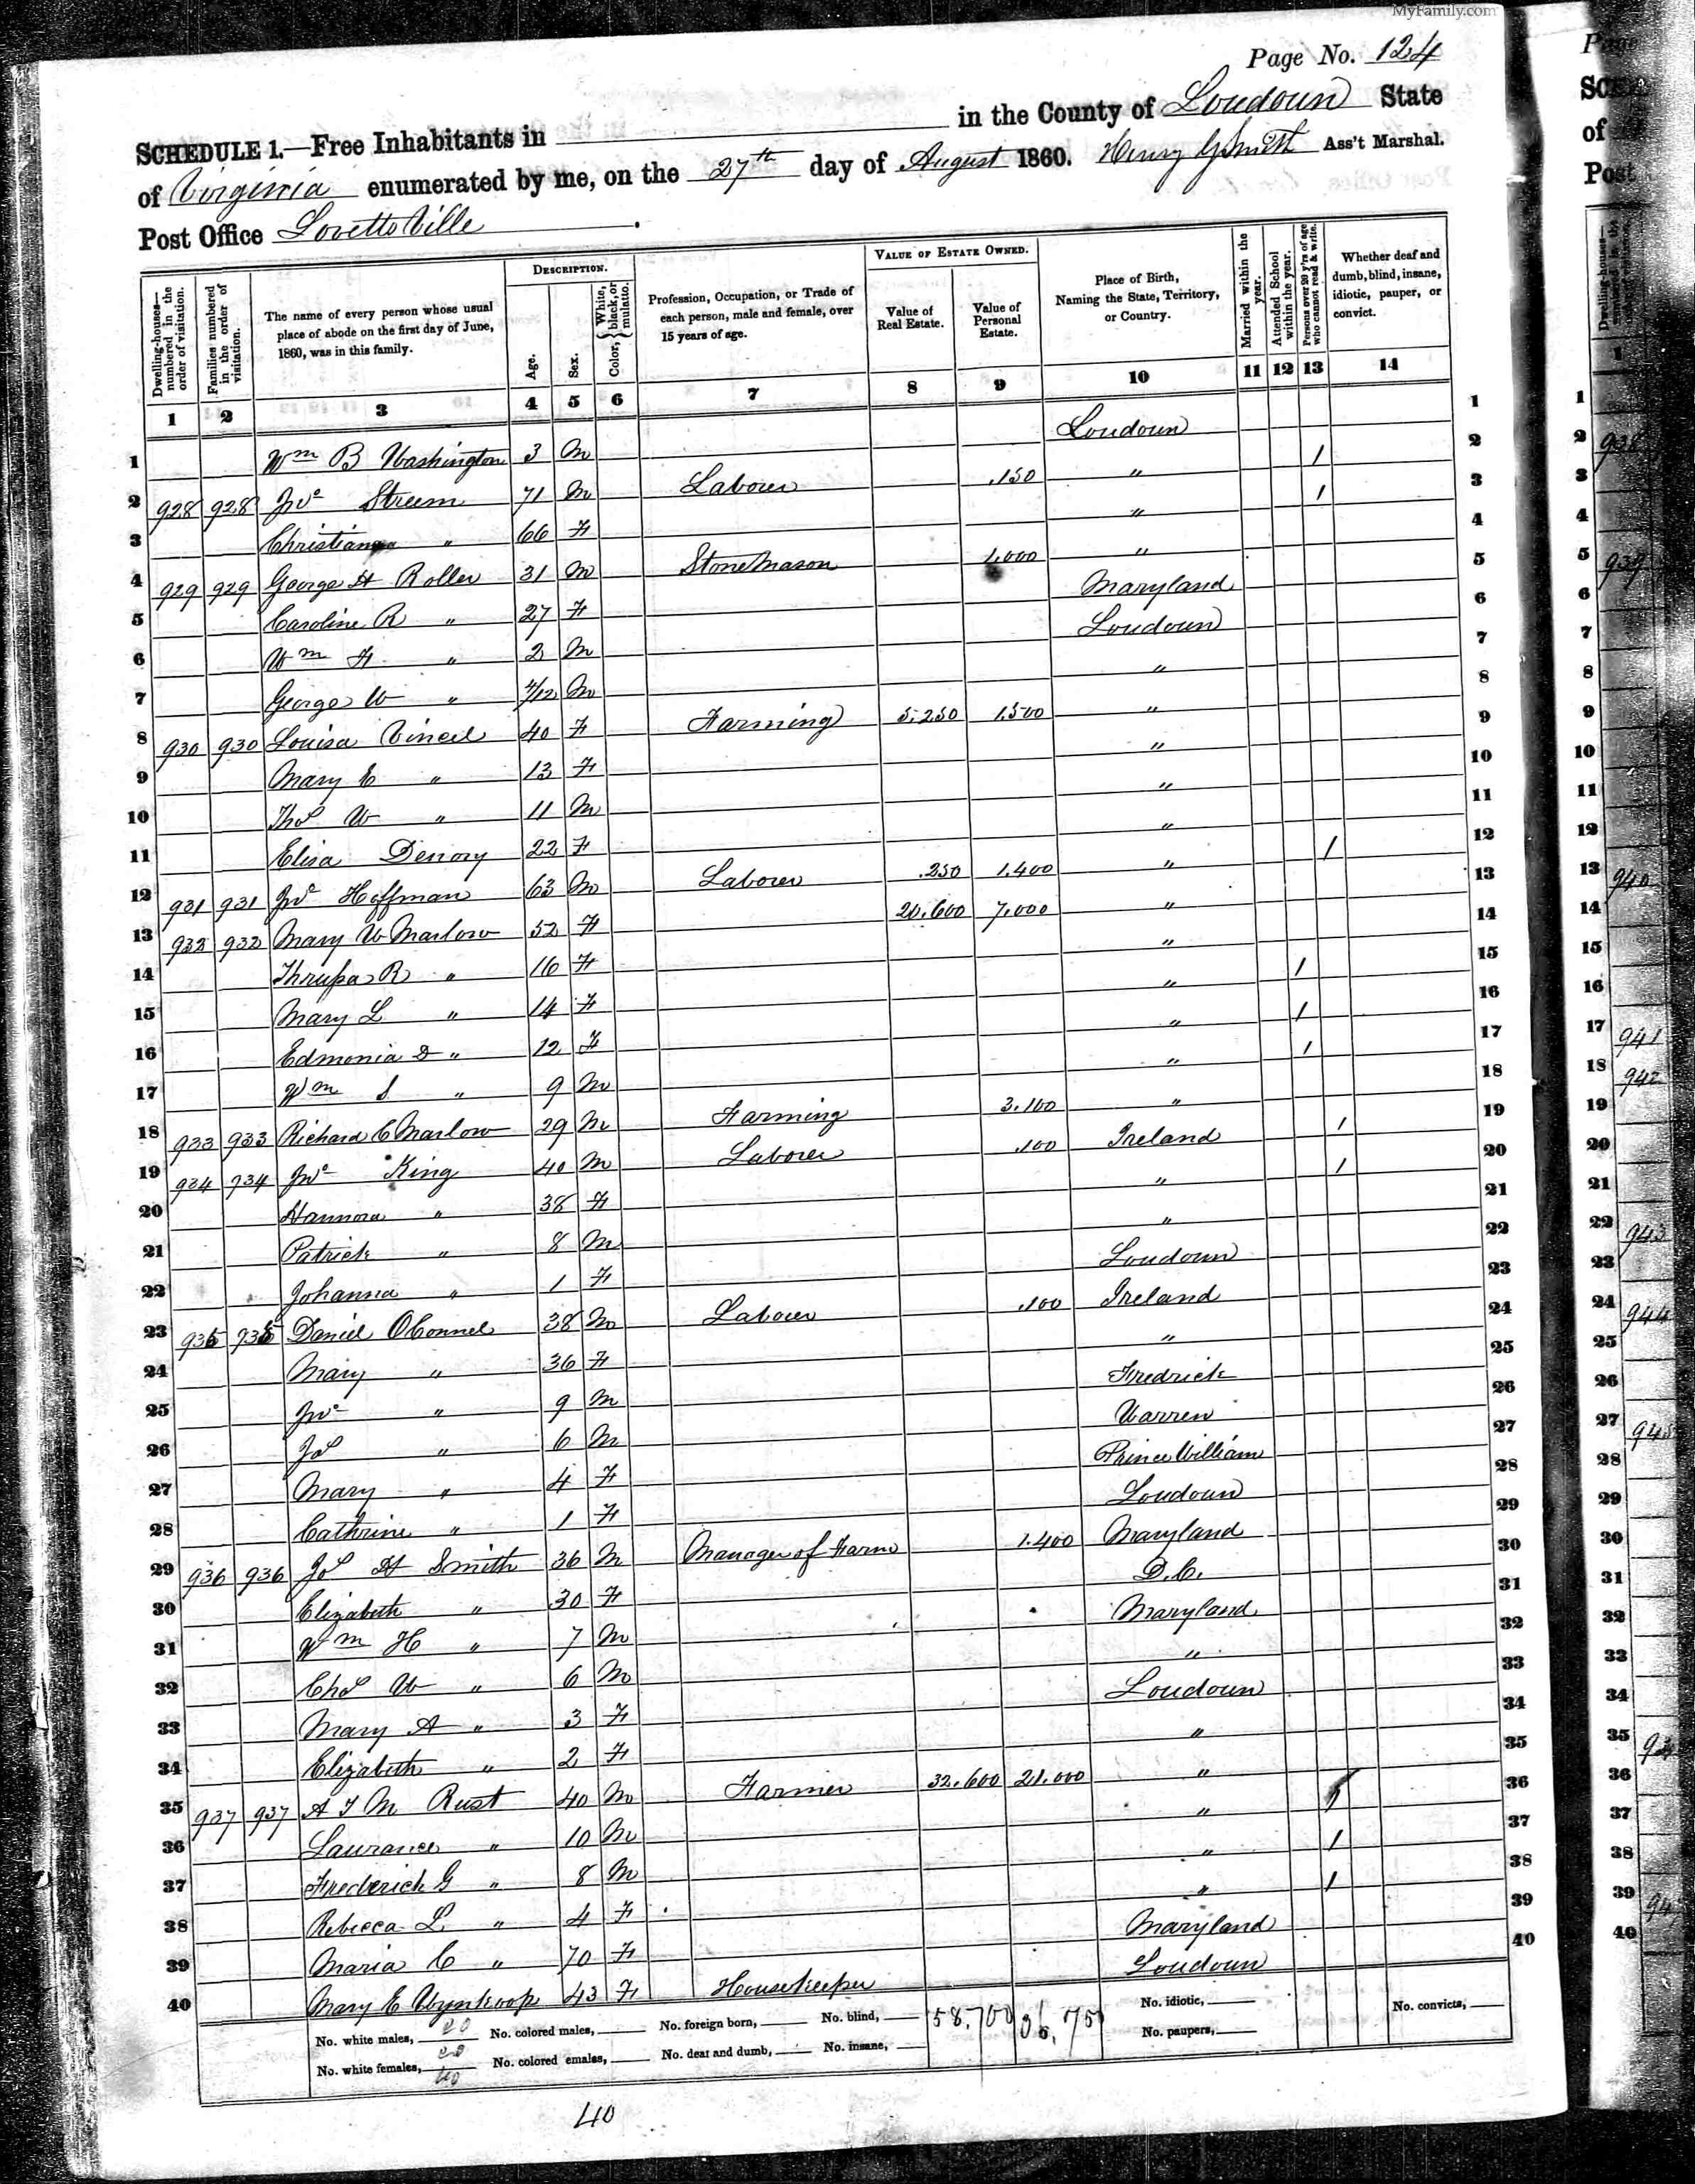 MyFamily.com
Page No. 124
SCHEDULE 1.—Free Inhabitants in in the County of Loudoun State
of Virginia enumerated by me, on the 27th day of August 1860. Henry G Smith Ass't Marshal.
Post Office Lovettsville.
Dwelling-houses—numbered in the order of visitation.
Families numbered in the order of visitation.
The name of every person whose usual place of abode on the first day of June, 1860, was in this family.
DESCRIPTION.
Age.
Sex.
Color, { White, black, or mulatto.
Profession, Occupation, or Trade of each person, male and female, over 15 years of age.
VALUE OF ESTATE OWNED.
Value of Real Estate.
Value of Personal Estate.
Place of Birth, Naming the State, Territory, or Country.
Married within the year.
Attended School within the year.
Persons over 20 y'rs of age who cannot read & write.
Whether deaf and dumb, blind, insane, idiotic, pauper, or convict.
1 2 3 4 5 6 7 8 9 10 11 12 13 14
1 Wm B Washington 3 M Loudoun 1
2 928 928 Jno Stream 71 M Laborer .150 " 1 2
3 Christiana " 66 F " 1 3
4 929 929 George H Roller 31 M Stone Mason 1,000 " 4
5 Caroline R " 27 F Maryland 5
6 Wm F " 2 M Loudoun 6
7 George W " /12 M " 7
8 930 930 Louisa Vincel 40 F Farming 5.250 1.500 " 8
9 Mary E " 13 F " 9
10 Thos W " 11 M " 10
11 Eliza 22 F " 11
12 931 931 Jno Hoffman 63 M Laborer .250 1.400 " 1 12
13 932 932 Mary W Marlow 52 F 20.600 7.000 " 13
14 R " 16 F " 14
15 Mary L " 14 F " 1 15
16 Edmonia D " 12 F " 1 16
17 Wm S " 9 M " 1 17
18 933 933 Richard C Marlow 29 M Farming 3.100 " 18
19 934 934 Jno King 40 M Laborer .100 Ireland 1 19
20 Hannora " 38 F " 1 20
21 Patrick " 8 M " 21
22 Johanna " 1 F Loudoun 22
23 935 935 Daniel OConnel 38 M Laborer .100 Ireland 23
24 Mary " 36 F " 24
25 Jno " 9 M Fredrick 25
26 Js " 6 M Warren 26
27 Mary " 4 F Prince William 27
28 Cathrine " 1 F Loudoun 28
29 936 936 Js H Smith 36 M Manager of Farm 1.400 Maryland 29
30 Elizabeth " 30 F D.C. 30
31 Wm H " 7 M Maryland 31
32 Chs W " 6 M " 32
33 Mary A " 3 F Loudoun 33
34 Elizabeth " 2 F " 34
35 937 937 A T M Rust 40 M Farmer 32.600 21.000 " 35
36 Laurance " 10 M " 1 36
37 Frederick G " 8 M " 1 37
38 Rebecca L " 4 F " 1 38
39 Maria C " 70 F Maryland 39
40 Mary E Wynkoop 43 F Housekeeper Loudoun 40
No. white males, 20 No. colored males, No. foreign born, No. blind, 58,700 36,75 No. idiotic, No. convicts,
No. white females, 20 No. colored emales, No. deaf and dumb, No. insane, No. paupers,
40
40